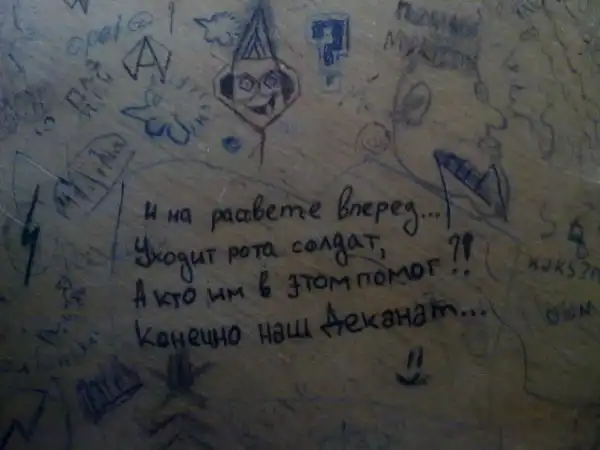 И на рассвете вперед...
Уходит рота солдат,
А кто им в этом помог ?!
Конечно наш Деканат...